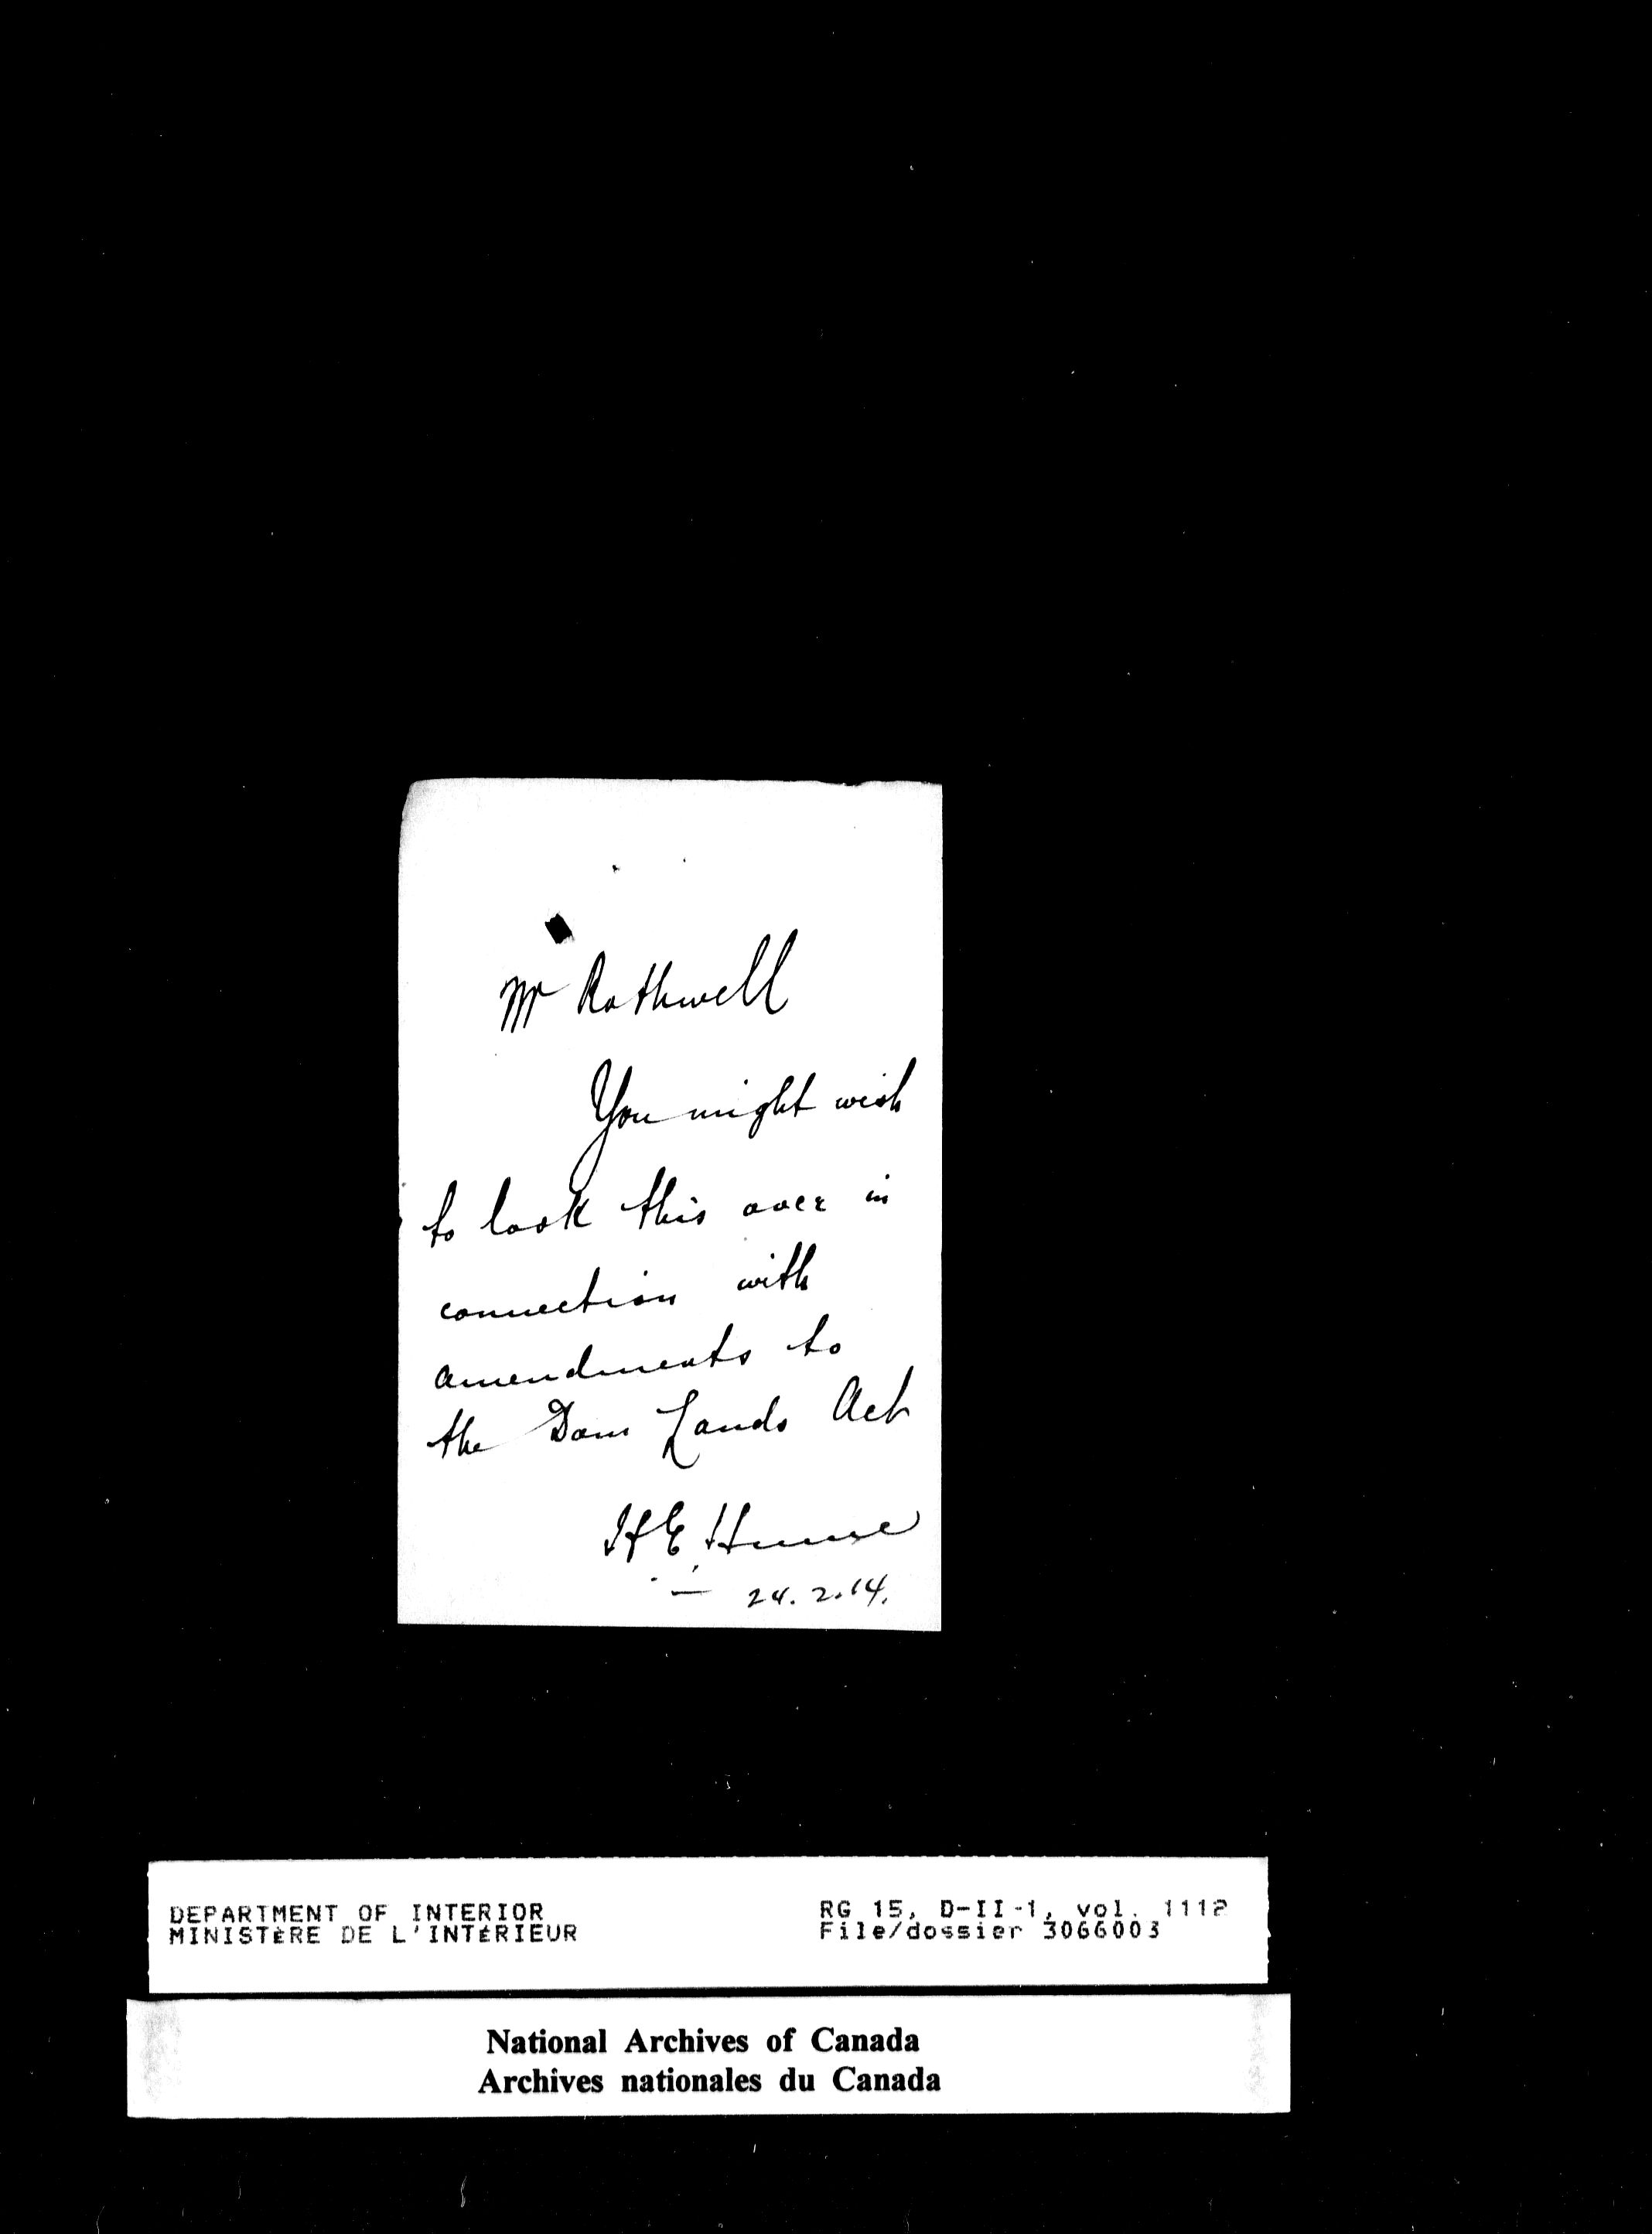 Mr Rothwell
You might wish
to look this over in
connection with
amendments to
the Dom Lands Act
H E Hume
24. 2. 14.
DEPARTMENT OF INTERIOR
MINISTÈRE DE L'INTÉRIEUR
RG 15, D-II-1, vol. 1112
File/dossier 3066003
National Archives of Canada
Archives nationales du Canada